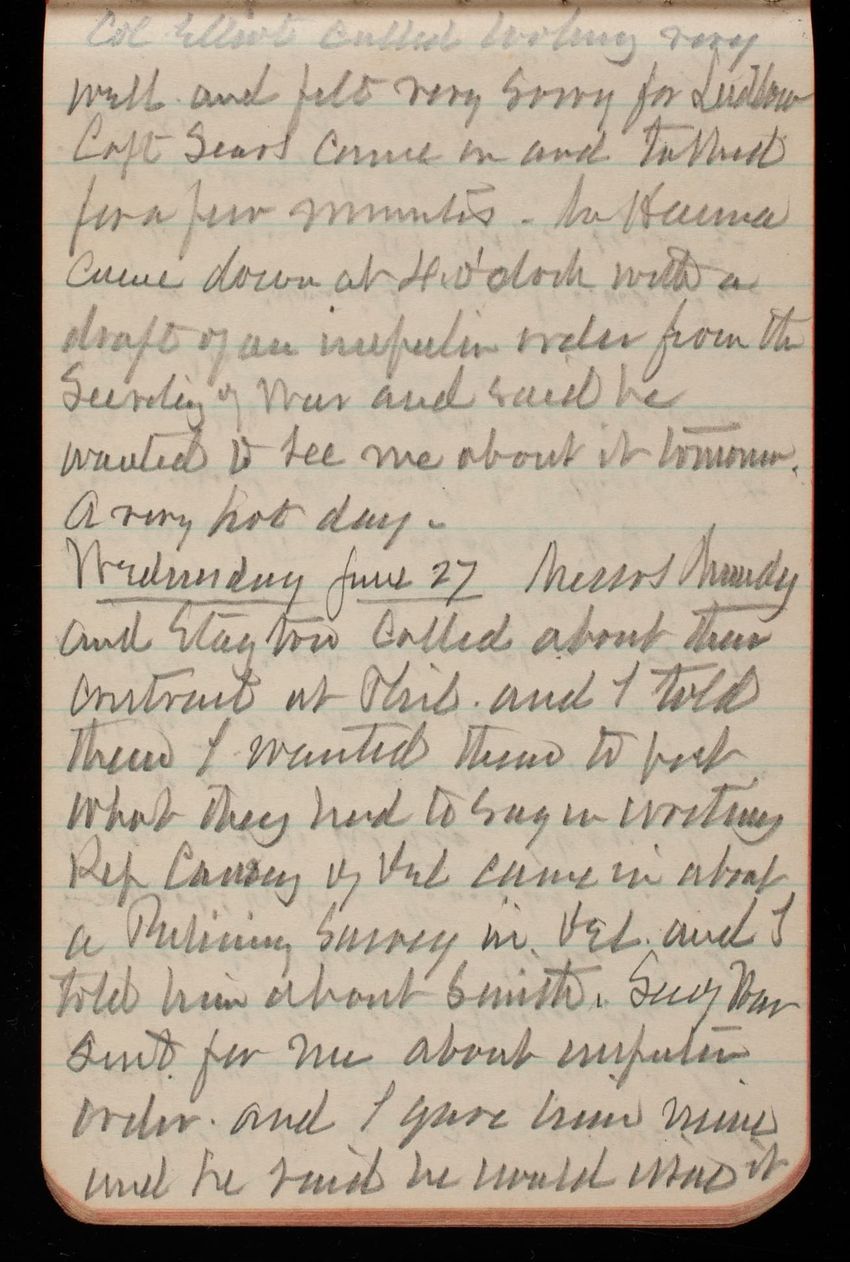 Col Elliot called looking very
well and felt very sorry for Ludlow
Capt Sears came in and talked
for a few minutes -
came down at 4 o'clock with a
draft of an inspection order from the
Secretary of War and said he
wanted to see me about it tomorrow.
A very hot day.
Wednesday June 27 Messrs
and Stayton called about their
contract at Phil. and I told
them I wanted them to put
what they had to say in writing
Rep Causey of Del came in about
a Preliminary Survey in Del. and I
told him about Smith. Secy War
sent for me about inspection
order. and I gave him mine
and he said he would issue it